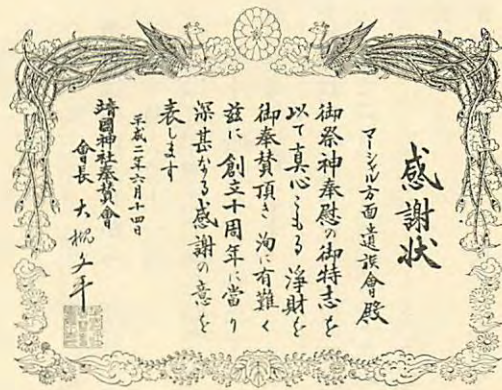 感謝状
マーシャル方面遺族會殿
御祭神奉慰の御特志を
以て真心こもる淨財を
御奉賛頂き洵に有難く
茲に創立十周年に當り
深甚なる感謝の意を
表します
平成二年六月十四日
靖國神社奉賛會
會長 大槻文平